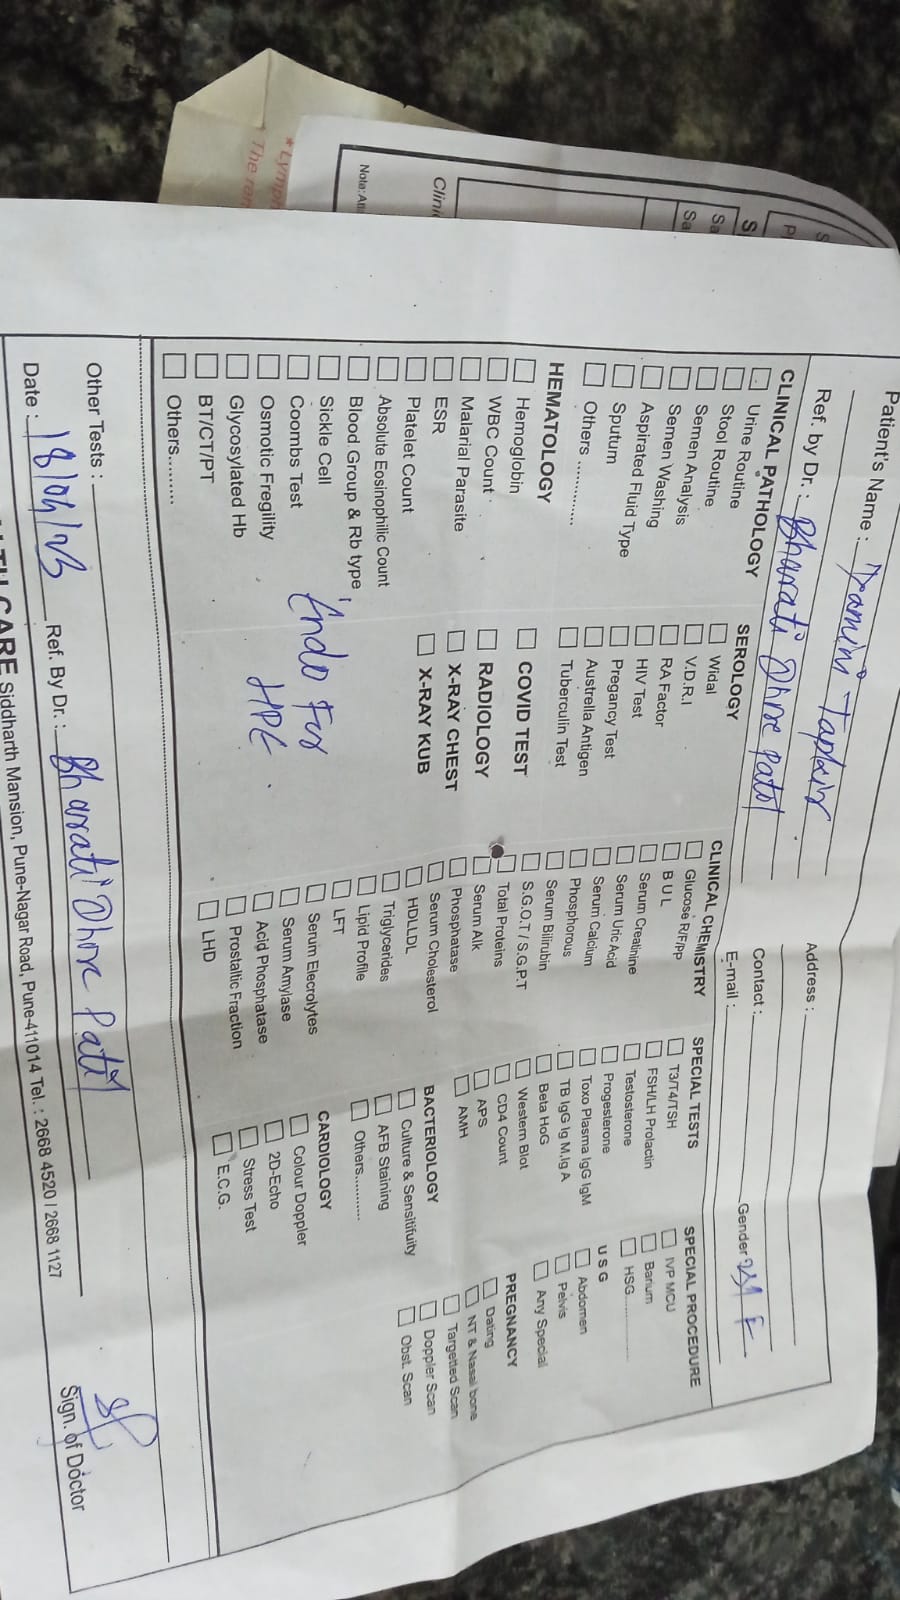 Patient's Name : Damini Taplxir
Address :
Ref. by Dr. : Bharati Dhore Patil
Contact :
E-mail :
Gender F
CLINICAL PATHOLOGY
Urine Routine
Stool Routine
Semen Analysis
Semen Washing
Aspirated Fluid Type
Sputum
Others ..............
HEMATOLOGY
Hemoglobin
WBC Count
Malarial Parasite
ESR
Platelet Count
Absolute Eosinophilic Count
Blood Group & Rb type
Sickle Cell
Coombs Test
Osmotic Fregility
Glycosylated Hb
BT/CT/PT
Others.........
SEROLOGY
Widal
V.D.R.I
RA Factor
HIV Test
Pregancy Test
Austrella Antigen
Tuberculin Test
COVID TEST
RADIOLOGY
X-RAY CHEST
X-RAY KUB
Endo For
HPE.
CLINICAL CHEMISTRY
Glucose R/F/PP
B U L
Serum Creatinine
Serum Uric Acid
Serum Calcium
Phosphorous
Serum Bilirubin
S.G.O.T / S.G.P.T
Total Proteins
Serum Alk
Phosphatase
Serum Cholesterol
HDLLDL
Triglycerides
Lipid Profile
LFT
Serum Elecrolytes
Serum Amylase
Acid Phosphatase
Prostaltic Fraction
LHD
SPECIAL TESTS
T3/T4/TSH
FSH/LH Prolactin
Testosterone
Progesterone
Toxo Plasma IgG IgM
TB IgG Ig M.Ig A
Beta HoG
Western Blot
CD4 Count
APS
AMH
BACTERIOLOGY
Culture & Sensitifuity
AFB Staining
Others...........
CARDIOLOGY
Colour Doppler
2D-Echo
Stress Test
E.C.G.
SPECIAL PROCEDURE
IVP MCU
Barium
HSG..............
U S G
Abdomen
Pelvis
Any Special
PREGNANCY
Dating
NT & Nasal bone
Targetted Scan
Doppler Scan
Obst. Scan
Other Tests :
Date : 18/04/23 Ref. By Dr. : Bharati Dhore Patil Sign. of Doctor
CARE Siddharth Mansion, Pune-Nagar Road, Pune-411014 Tel. : 2668 4520 / 2668 1127